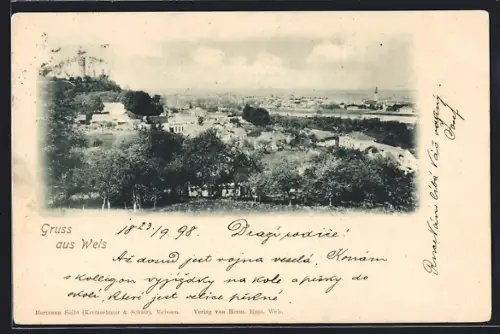 Gruss
aus Wels
18 23/9 98. Dragí rodiče!
Až dosud jest vojna veselá. Konám
s kollegou vyjížďky na kole a pěšky do
okolí, které jest velice pěkné.
Ruce Vám líbá Váš vděčný
Josef
Hermann Seibt (Kretzschmar & Schatz), Meissen. Verlag von Herm. Wels.